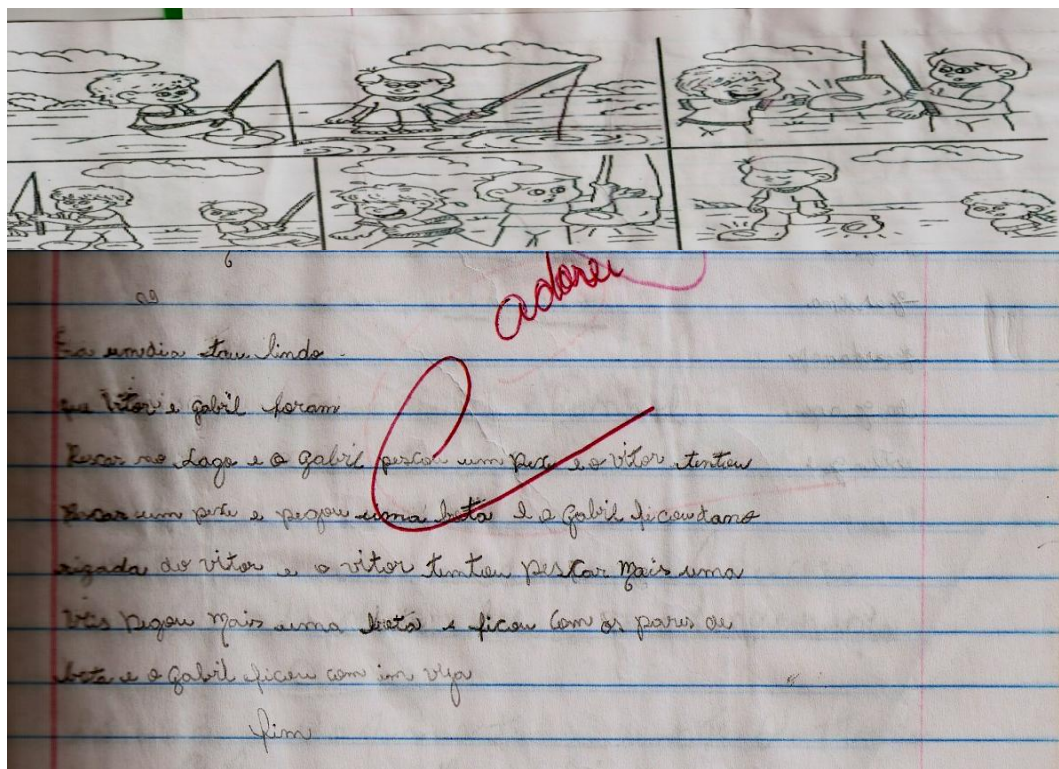 adorei
Era umdia tau lindo.
que Vitor e gabil foram
Pescar no Lago e o gabil pescou um pexe e o vitor tentou
Pescar um pexe e pegou uma bota e o gabil ficoudano
rizada do vitor e o vitor tentou pescar mais uma
veis pegou mais uma bota e ficou com os pares de
bota e o gabil ficou com in veja
fim